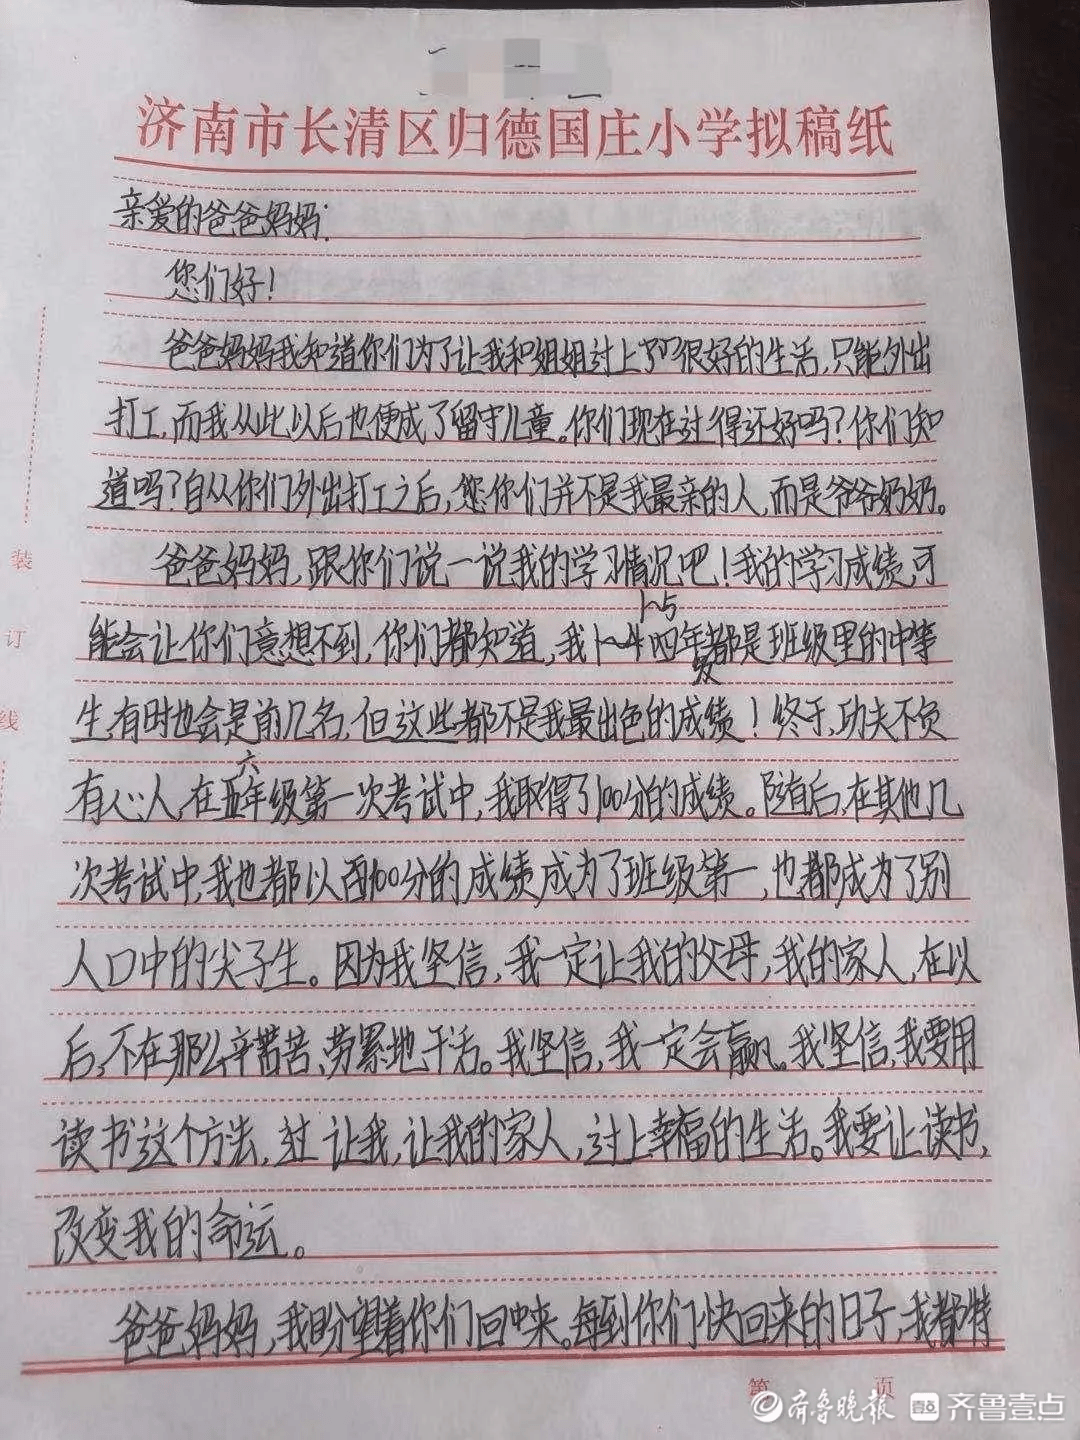 济南市长清区归德国庄小学拟稿纸
亲爱的爸爸妈妈:
您们好!
爸爸妈妈我知道你们为了让我和姐姐过上了很好的生活,只能外出
打工,而我从此以后也便成了留守儿童。你们现在过得还好吗?你们知
道吗?自从你们外出打工之后,您你们并不是我最亲的人,而是爷爷奶奶。
爸爸妈妈,跟你们说一说我的学习情况吧!我的学习成绩,可
1~5
能会让你们意想不到,你们都知道,我1~4四年都是班级里的中等
级
生,有时也会是前几名,但这些都不是我最出色的成绩!终于,功夫不负
六
有心人,在五年级第一次考试中,我取得了100分的成绩。随后,在其他几
次考试中,我也都以百100分的成绩,成为了班级第一,也都成为了别
人口中的尖子生。因为我坚信,我一定让我的父母,我的家人,在以
后,不在那么辛苦苦、劳累地干活。我坚信,我一定会赢。我坚信,我要用
读书这个方法,过让我,让我的家人,过上幸福的生活。我要让读书,
改变我的命运。
爸爸妈妈,我盼望着你们回来。每到你们快回来的日子,我都特
装
订
线
第 页
齐鲁晚报 壹点 齐鲁壹点